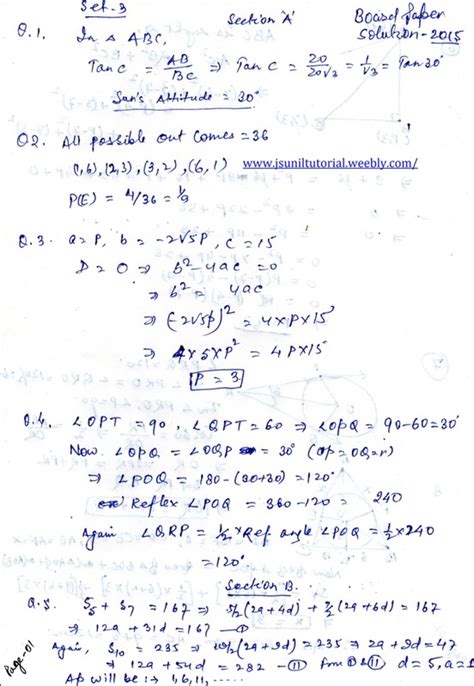 Set-3
Section 'A'
Board Paper
Solution-2015
Q.1. In △ ABC,
Tan C = AB/BC ⇒ Tan C = 20/20√3 = 1/√3 = Tan 30°
Sun's Altitude = 30°
Q2. All possible out comes = 36
(1,6), (2,3), (3,2), (6,1)
www.jsuniltutorial.weebly.com/
P(E) = 4/36 = 1/9
Q.3. a = P, b = -2√5P, c = 15
D = 0 ⇒ b² - 4ac = 0
⇒ b² = 4ac
⇒ (-2√5P)² = 4×P×15
⇒ 4×5×P² = 4P×15
P = 3
Q.4. ∠OPT = 90, ∠QPT = 60 ⇒ ∠OPQ = 90-60 = 30°
Now ∠OPQ = ∠OQP = 30° (OP = OQ = r)
⇒ ∠POQ = 180 - (30+30) = 120°
Reflex ∠POQ = 360 - 120 = 240
Again ∠QRP = ½ × Ref angle ∠POQ = ½ × 240
= 120°
Section B.
Q.5. S₅ + S₇ = 167 ⇒ 5/2(2a+4d) + 7/2(2a+6d) = 167
⇒ 12a + 31d = 167 – ①
Again, S₁₀ = 235 ⇒ 10/2(2a+9d) = 235 ⇒ 2a + 9d = 47
⇒ 12a + 54d = 282 – ⑪ from ① & ⑪ d = 5, a = 1
AP will be :→ 1, 6, 11, ......
Page-01